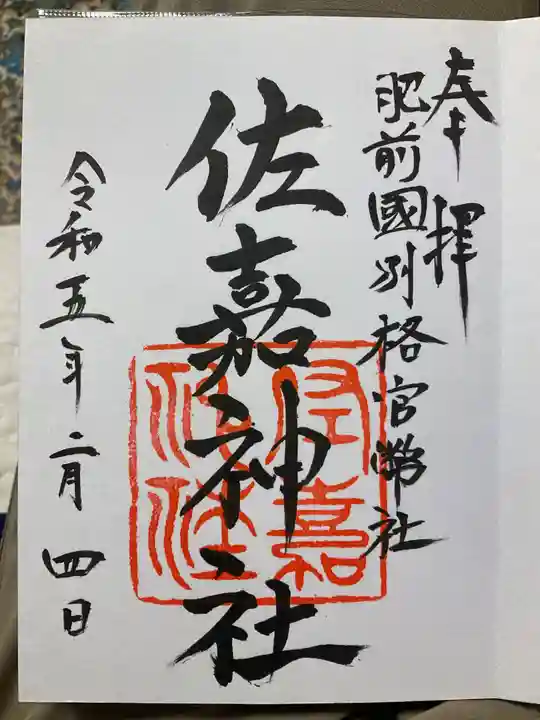 奉拝
肥前國別格官幣社
佐嘉神社
佐嘉
神社
令和五年二月四日